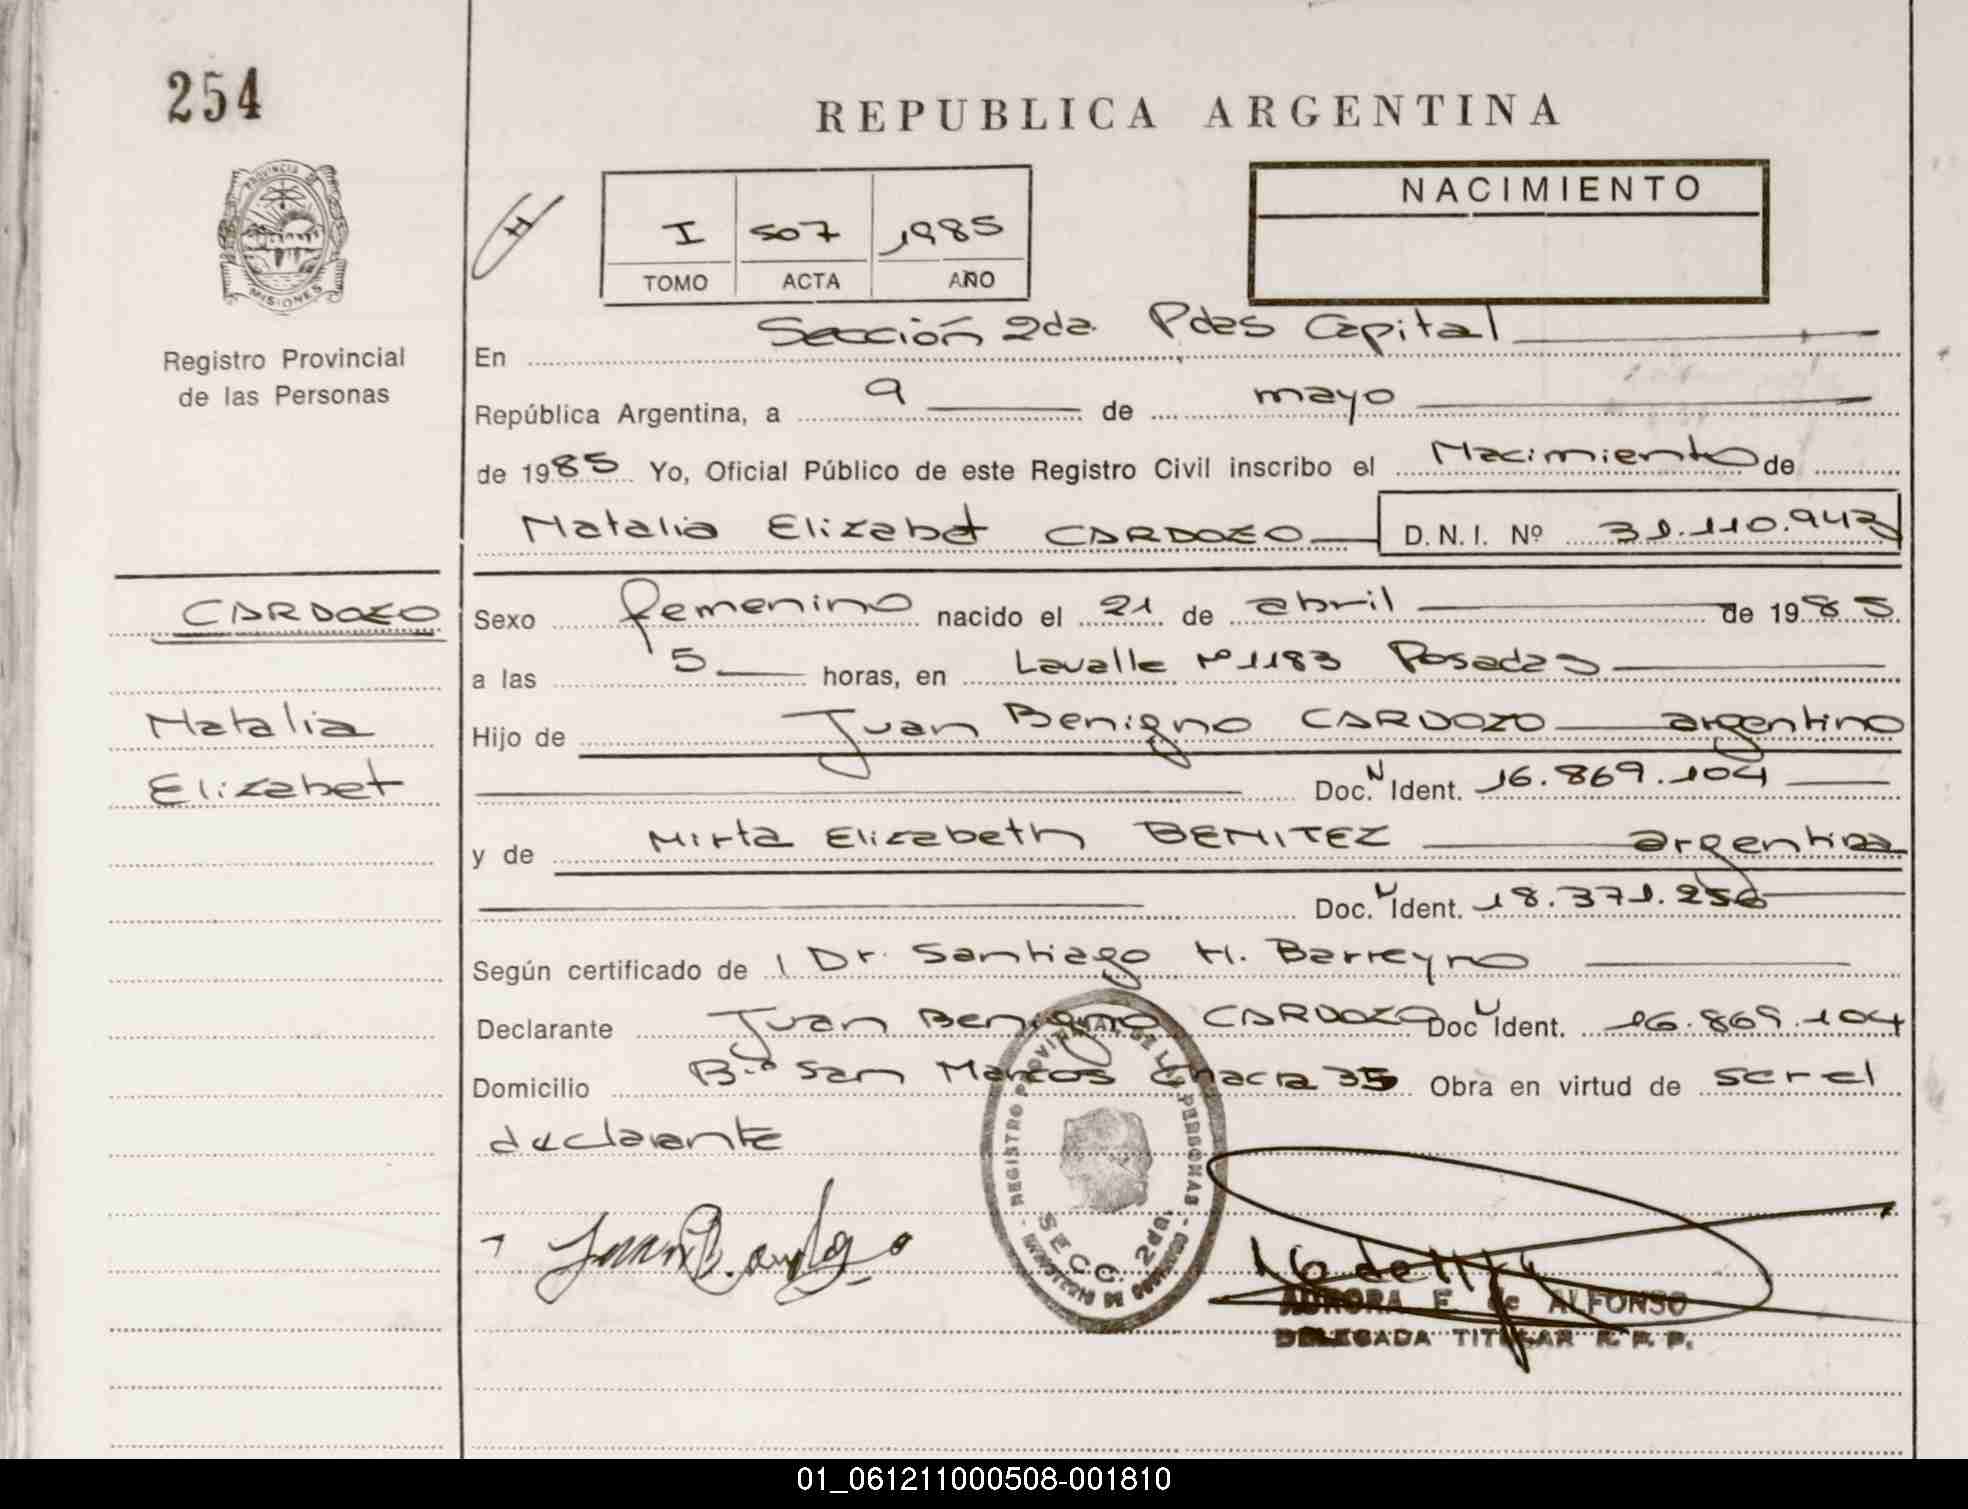 254
REPUBLICA ARGENTINA
PROVINCIA DE
MISIONES
Registro Provincial
de las Personas
I 507 1985
TOMO ACTA AÑO
NACIMIENTO
En Sección 2da. Pdas Capital
República Argentina, a 9 de mayo
de 1985 Yo, Oficial Público de este Registro Civil inscribo el Nacimiento de
Natalia Elizabet CARDOZO D.N.I. Nº 31.110.943
CARDOZO
Natalia
Elizabet
Sexo femenino nacido el 21 de abril de 1985
a las 5 horas, en Lavalle Nº 1183 Posadas
Hijo de Juan Benigno CARDOZO argentino
Doc. N Ident. 16.869.104
y de Mirta Elizabeth BENITEZ argentina
Doc. N Ident. 18.371.256
Según certificado de Dr. Santiago H. Barreyro
Declarante Juan Benigno CARDOZO Doc N Ident. 16.869.104
Domicilio B.º San Marcos Chacra 35 Obra en virtud de ser el
declarante
REGISTRO PROVINCIAL DE LAS PERSONAS
SECC. 2da.
MINISTERIO DE GOBIERNO
AURORA F. de ALFONSO
DELEGADA TITULAR R. P. P.
01_061211000508-001810